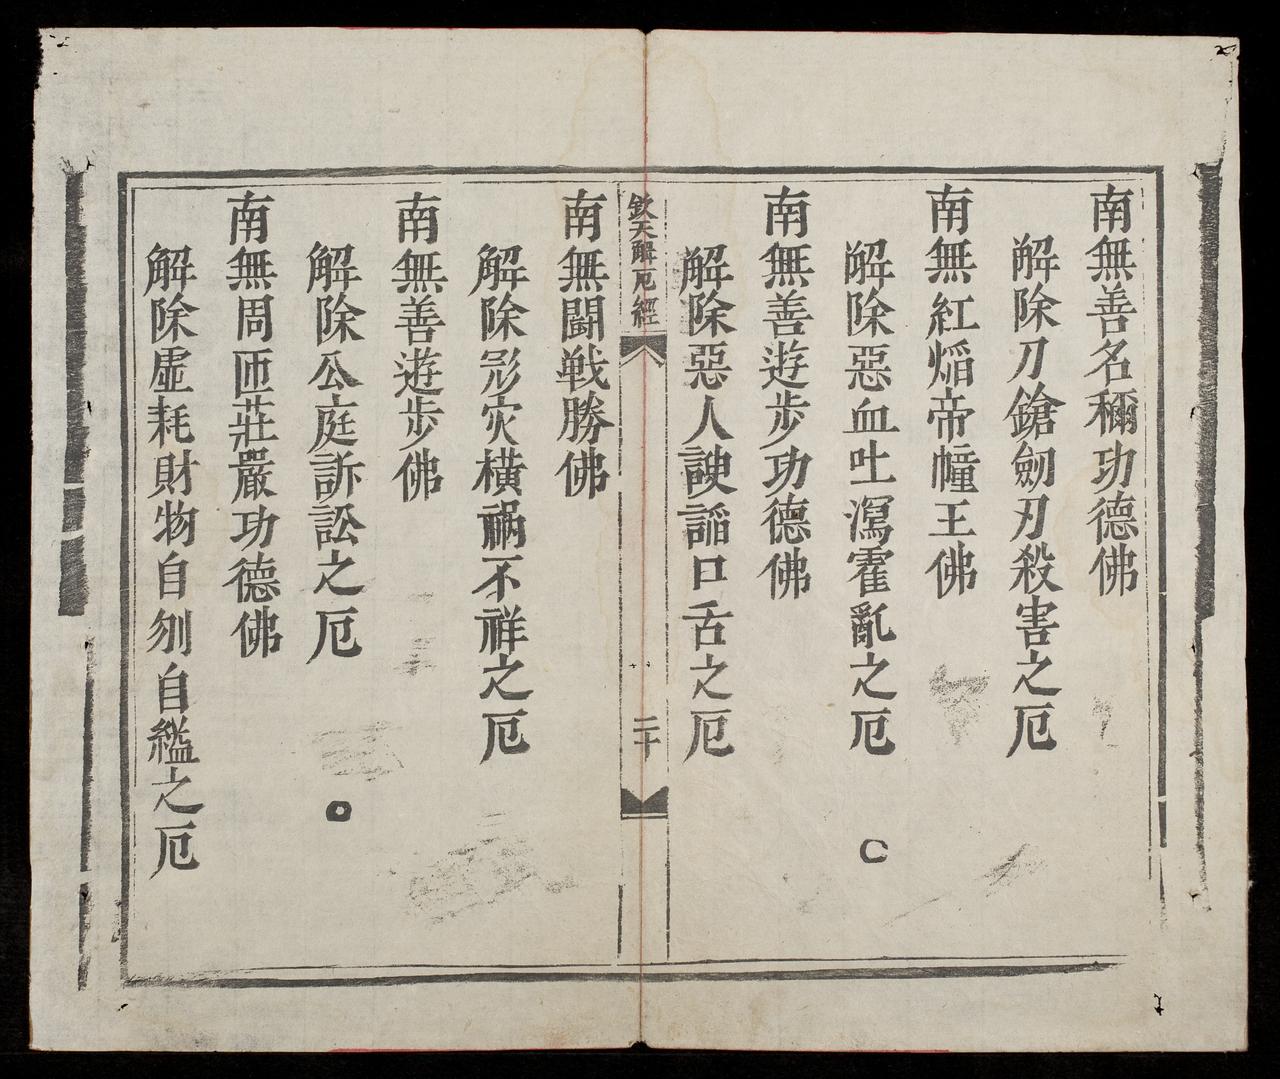 南無善名稱功德佛
解除刀鎗劒刃殺害之厄
南無紅熖帝幢王佛
解除惡血吐瀉霍亂之厄
南無善遊步功德佛
解除惡人諛謟口舌之厄
欽天解厄經
二十
南無鬪戰勝佛
解除災橫禍不祥之厄
南無善遊步佛
解除公庭訴訟之厄
南無周匝莊嚴功德佛
解除虛耗財物自刎自縊之厄